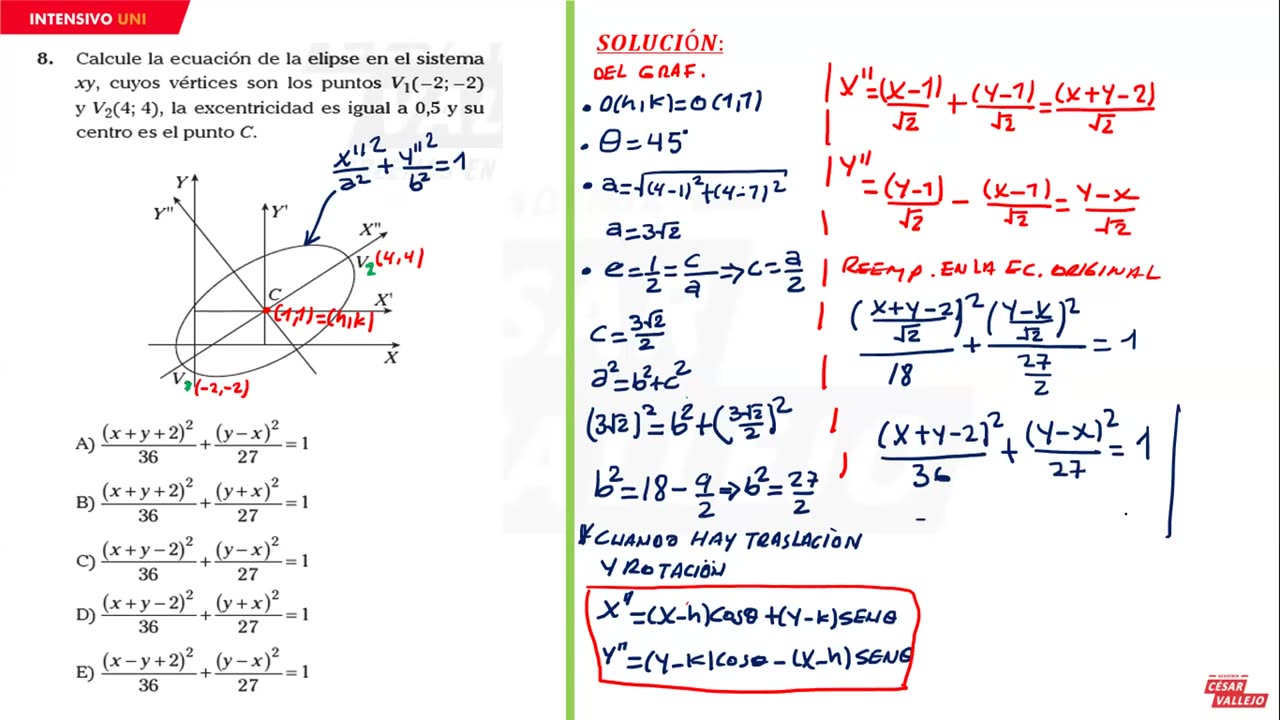 INTENSIVO UNI
8. Calcule la ecuación de la elipse en el sistema
xy, cuyos vértices son los puntos V₁(−2; −2)
y V₂(4; 4), la excentricidad es igual a 0,5 y su
centro es el punto C.
x''²/a² + y''²/b² = 1
Y
Y''
Y'
X''
V₂(4,4)
C
X'
(1,1)=(h,k)
X
V (-2,-2)
A) (x+y+2)²/36 + (y−x)²/27 = 1
B) (x+y+2)²/36 + (y+x)²/27 = 1
C) (x+y−2)²/36 + (y−x)²/27 = 1
D) (x+y−2)²/36 + (y+x)²/27 = 1
E) (x−y+2)²/36 + (y−x)²/27 = 1
SOLUCIÓN:
DEL GRAF.
• O(h,k)=O(1,1)
• θ=45°
• a=√((4-1)²+(4-1)²)
a=3√2
• e=1/2=c/a⇒c=a/2
c=3√2/2
a²=b²+c²
(3√2)²=b²+(3√2/2)²
b²=18-9/2⇒b²=27/2
* CUANDO HAY TRASLACIÓN
Y ROTACIÓN
X''=(X-h)cosθ+(Y-k)SENθ
Y''=(Y-k)cosθ-(X-h)SENθ
X''=(X-1)/√2+(Y-1)/√2=(X+Y-2)/√2
Y''=(Y-1)/√2-(X-1)/√2=Y-X/√2
REEMP. EN LA EC. ORIGINAL
((X+Y-2)/√2)²/18+(Y-X/√2)²/(27/2)=1
(X+Y-2)²/36+(Y-X)²/27=1
ACADEMIA
CÉSAR
VALLEJO